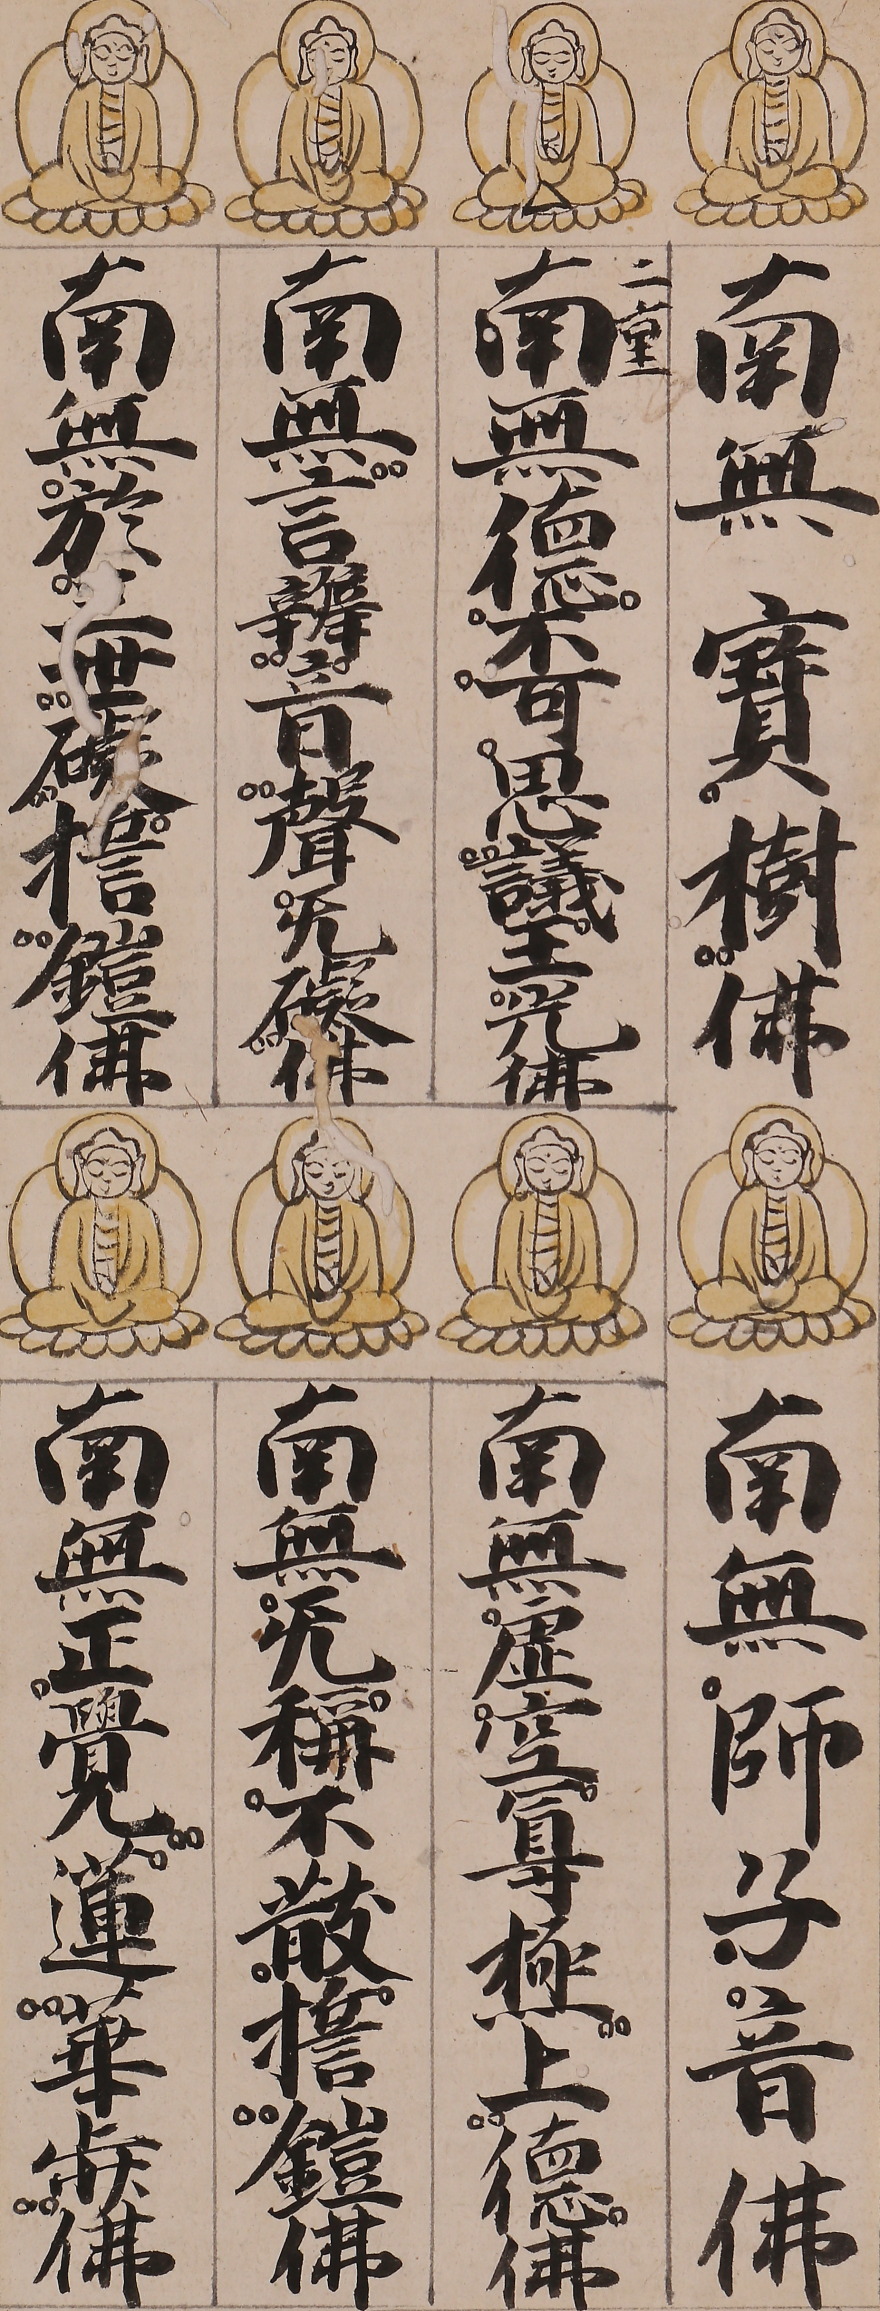 南無寶樹佛
南無師子音佛
二重
南無德不可思議王光佛
南無虛空尊極上德佛
南無言辯音聲无礙佛
南無无稱不散擔鎧佛
南無於三世礙擔鎧佛
南無正覺蓮華步佛